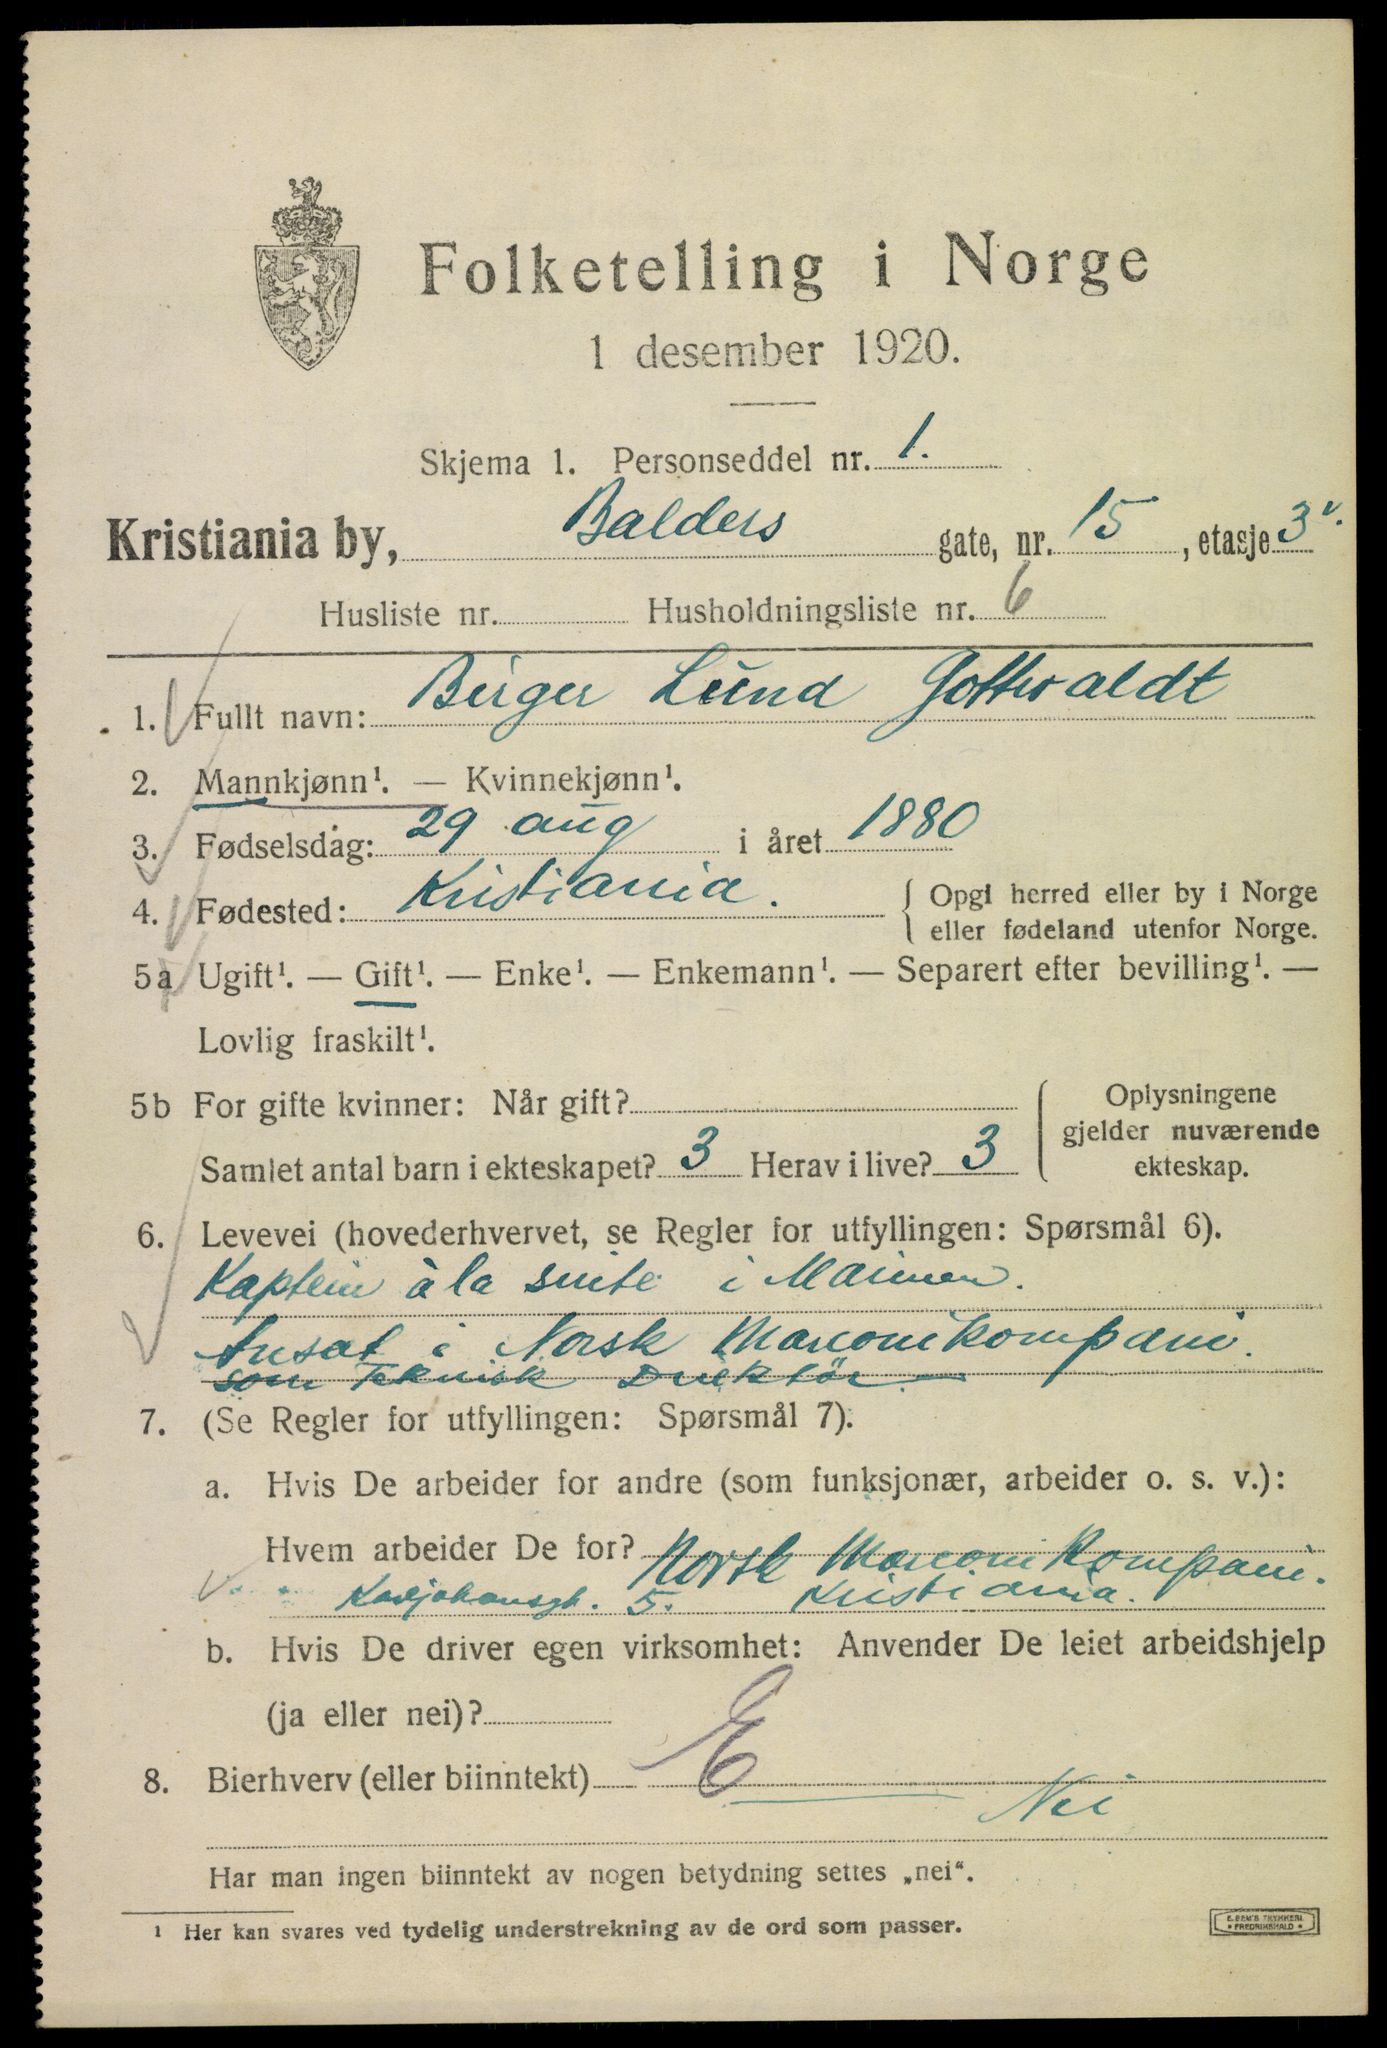 Folketelling i Norge
1 desember 1920.
Skjema 1. Personseddel nr. 1.
Kristiania by, Balders gate, nr. 15, etasje 3 v.
Husliste nr. Husholdningsliste nr. 6
1. Fullt navn: Birger Lund Gottwaldt
2. Mannkjønn¹. — Kvinnekjønn¹.
3. Fødselsdag: 29 aug i året 1880
4. Fødested: Kristiania. { Opgi herred eller by i Norge
eller fødeland utenfor Norge.
5a Ugift¹. — Gift¹. — Enke¹. — Enkemann¹. — Separert efter bevilling¹. —
Lovlig fraskilt¹.
5b For gifte kvinner: Når gift? { Oplysningene
gjelder nuværende
Samlet antal barn i ekteskapet? 3 Herav i live? 3 ekteskap.
6. Levevei (hovederhvervet, se Regler for utfyllingen: Spørsmål 6).
Kaptein à la suite i Marinen.
Ansat i Norsk Marconikompani.
som Teknisk Direktör
7. (Se Regler for utfyllingen: Spørsmål 7).
a. Hvis De arbeider for andre (som funksjonær, arbeider o. s. v.):
Hvem arbeider De for? Norsk Marconi Kompani.
Karljohansgt. 5. Kristiania.
b. Hvis De driver egen virksomhet: Anvender De leiet arbeidshjelp
(ja eller nei)? E
8. Bierhverv (eller biinntekt)
Nei
Har man ingen biinntekt av nogen betydning settes „nei“.
¹ Her kan svares ved tydelig understrekning av de ord som passer.
E. SEM'S TRYKKERI
* FREDRIKSHALD *